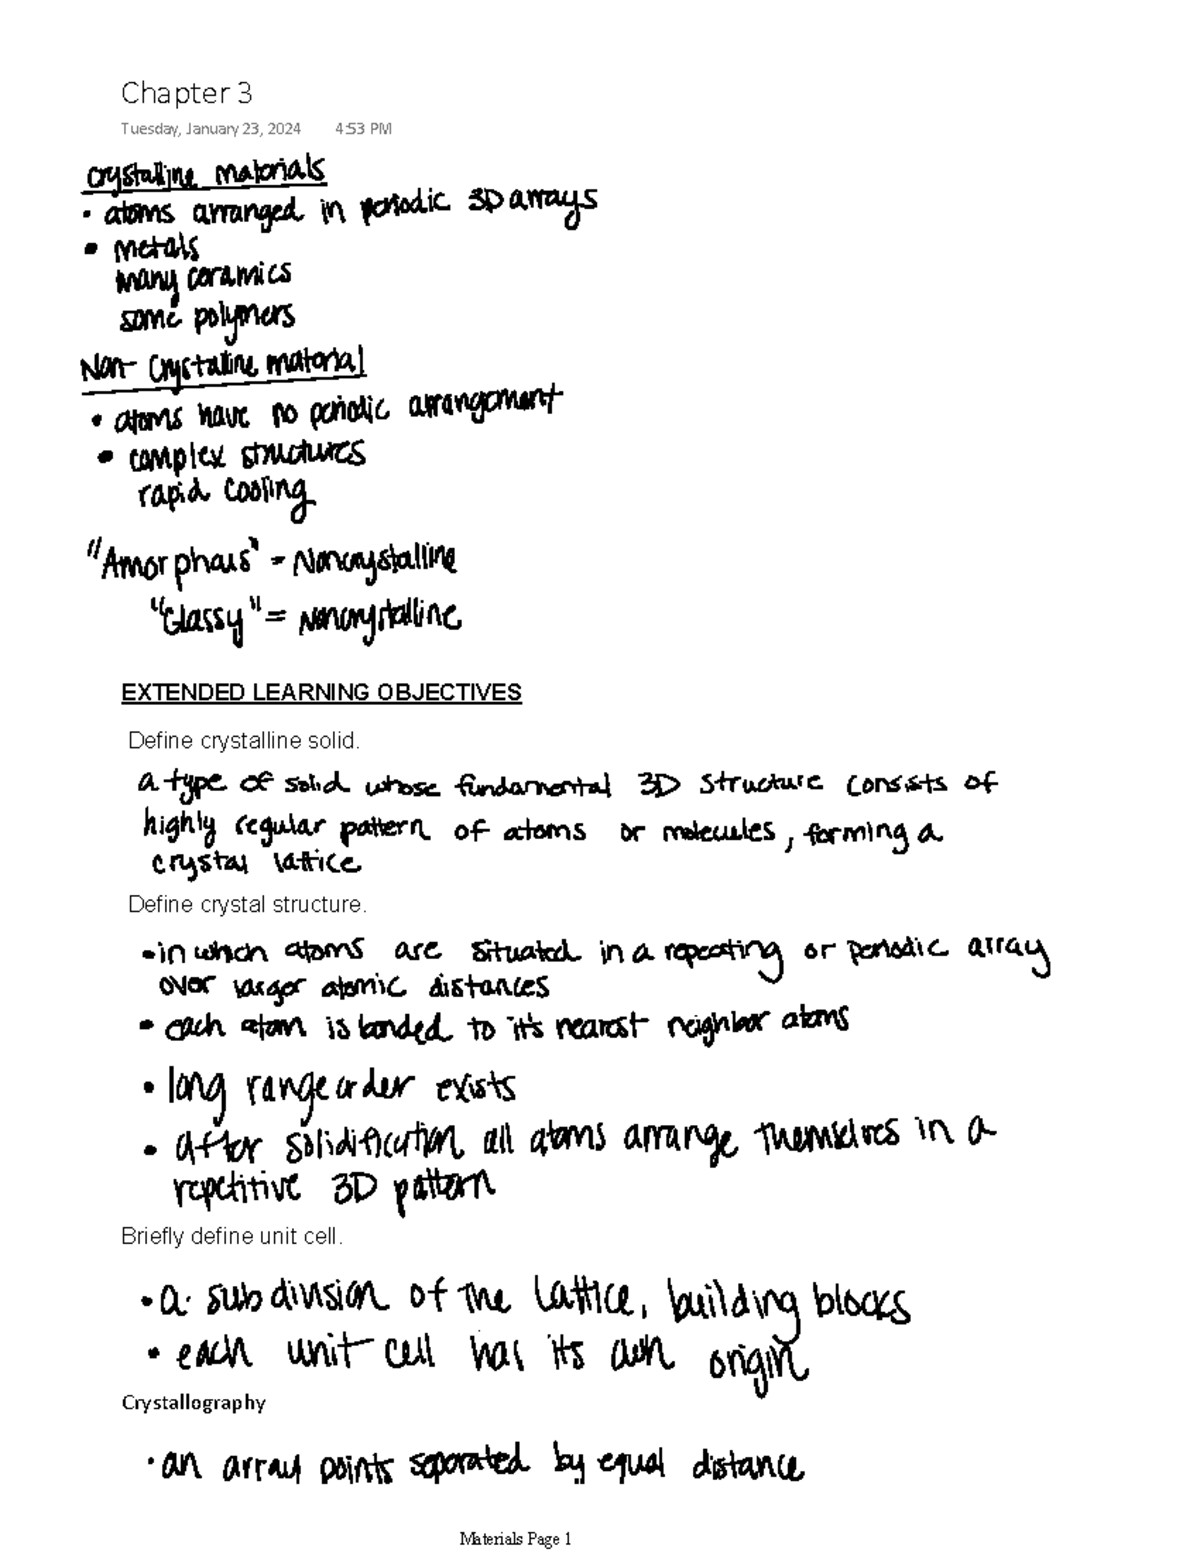 Chapter 3
Tuesday, January 23, 2024 4:53 PM
Crystalline materials
• atoms arranged in periodic 3D arrays
• metals
many ceramics
some polymers
Non-Crystalline material
• atoms have no periodic arrangement
• complex structures
rapid cooling
"Amorphous" = Noncrystalline
"Glassy" = Noncrystalline
EXTENDED LEARNING OBJECTIVES
Define crystalline solid.
a type of solid whose fundamental 3D structure consists of
highly regular pattern of atoms or molecules, forming a
crystal lattice
Define crystal structure.
• in which atoms are situated in a repeating or periodic array
over larger atomic distances
• each atom is bonded to it's nearest neighbor atoms
• long range order exists
• after solidification all atoms arrange themselves in a
repetitive 3D pattern
Briefly define unit cell.
• a subdivision of the lattice, building blocks
• each unit cell has its own origin
Crystallography
• an array points separated by equal distance
Materials Page 1